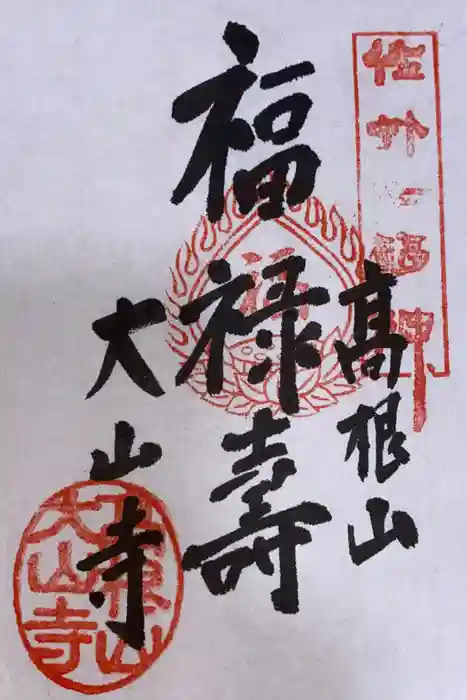 佐竹七福神
高根山
福禄壽
大山寺
福
高根山
大山寺